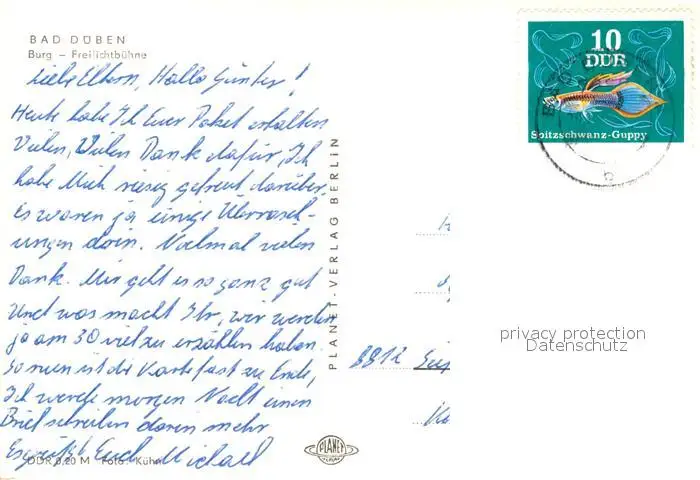 BAD DÜBEN
Burg – Freilichtbühne
Liebe Eltern, Hallo Günter!
Heute habe Ich Euer Paket erhalten
Vielen, Vielen Dank dafür, Ich
habe Mich riesig gefreut darüber,
Es waren ja einige Überrasch-
ungen darin. Nochmal vielen
Dank. Mir geht es so ganz gut
Und was macht Ihr, wir werden
ja am 30 viel zu erzählen haben.
So nun ist die Karte fast zu Ende,
Ich werde morgen Nacht einen
Brief schreiben darin mehr
Es grüßt Euch Michael
DDR 0,20 M Foto: Kühn
PLANET-VERLAG BERLIN
PLANET
VERLAG
10
DDR
Spitzschwanz-Guppy
b
privacy protection
Datenschutz